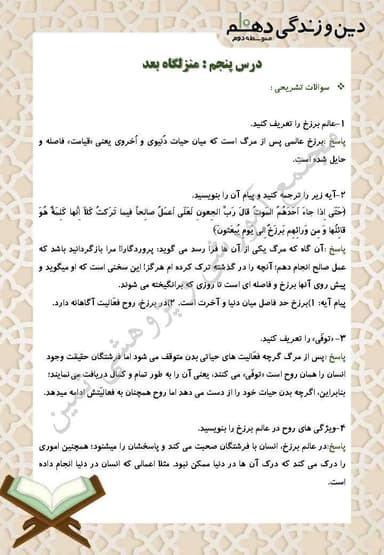 دین و زندگی دهم
متوسطه دوم
درس پنجم : منزلگاه بعد
❖ سوالات تشریحی :
۱-عالم برزخ را تعریف کنید.
پاسخ :برزخ عالمی پس از مرگ است که میان حیات دُنیوی و اُخروی یعنی «قیامت» فاصله و
حایل شده است.
۲-آیه زیر را ترجمه کنید و پیام آن را بنویسید.
﴿حَتّی اِذا جاءَ اَحَدَهُمُ الموتُ قالَ رَبِّ ارجِعونِ لَعَلّی اَعمَلُ صالِحاً فیما تَرَکتُ کَلّا اِنَّها کَلِمَةٌ هُوَ
قائِلُها وَ مِن وَرائِهِم بَرزَخٌ اِلی یَومِ یُبعَثونَ﴾
پاسخ :آن گاه که مرگ یکی از آن ها فرا رسد می گوید: پروردگارا! مرا بازگردانید باشد که
عمل صالح انجام دهم؛ آنچه را در گذشته ترک کرده ام هرگز! این سخنی است که او میگوید و
پیش روی آنها برزخ و فاصله ای است تا روزی که برانگیخته می شوند.
پیام آیه: ۱)برزخ حد فاصل میان دنیا و آخرت است. ۲)در برزخ، روح فعّالیت آگاهانه دارد.
۳- «توفّی» را تعریف کنید.
پاسخ :پس از مرگ گرچه فعّالیت های حیاتی بدن متوقف می شود اما فرشتگان حقیقت وجود
انسان را همان روح است «توفّی» می کنند، یعنی آن را به طور تمام و کمال دریافت می نمایند؛
بنابراین، اگرچه بدن حیات خود را از دست می دهد اما روح همچنان به فعالیّتش ادامه میدهد.
۴-ویژگی های روح در عالم برزخ را بنویسید.
پاسخ:در عالم برزخ، انسان با فرشتگان صحبت می کند و پاسخشان را میشنود؛ همچنین اموری
را درک می کند که درک آن ها در دنیا ممکن نبود. مثلا اعمالی که انسان در دنیا انجام داده
است.